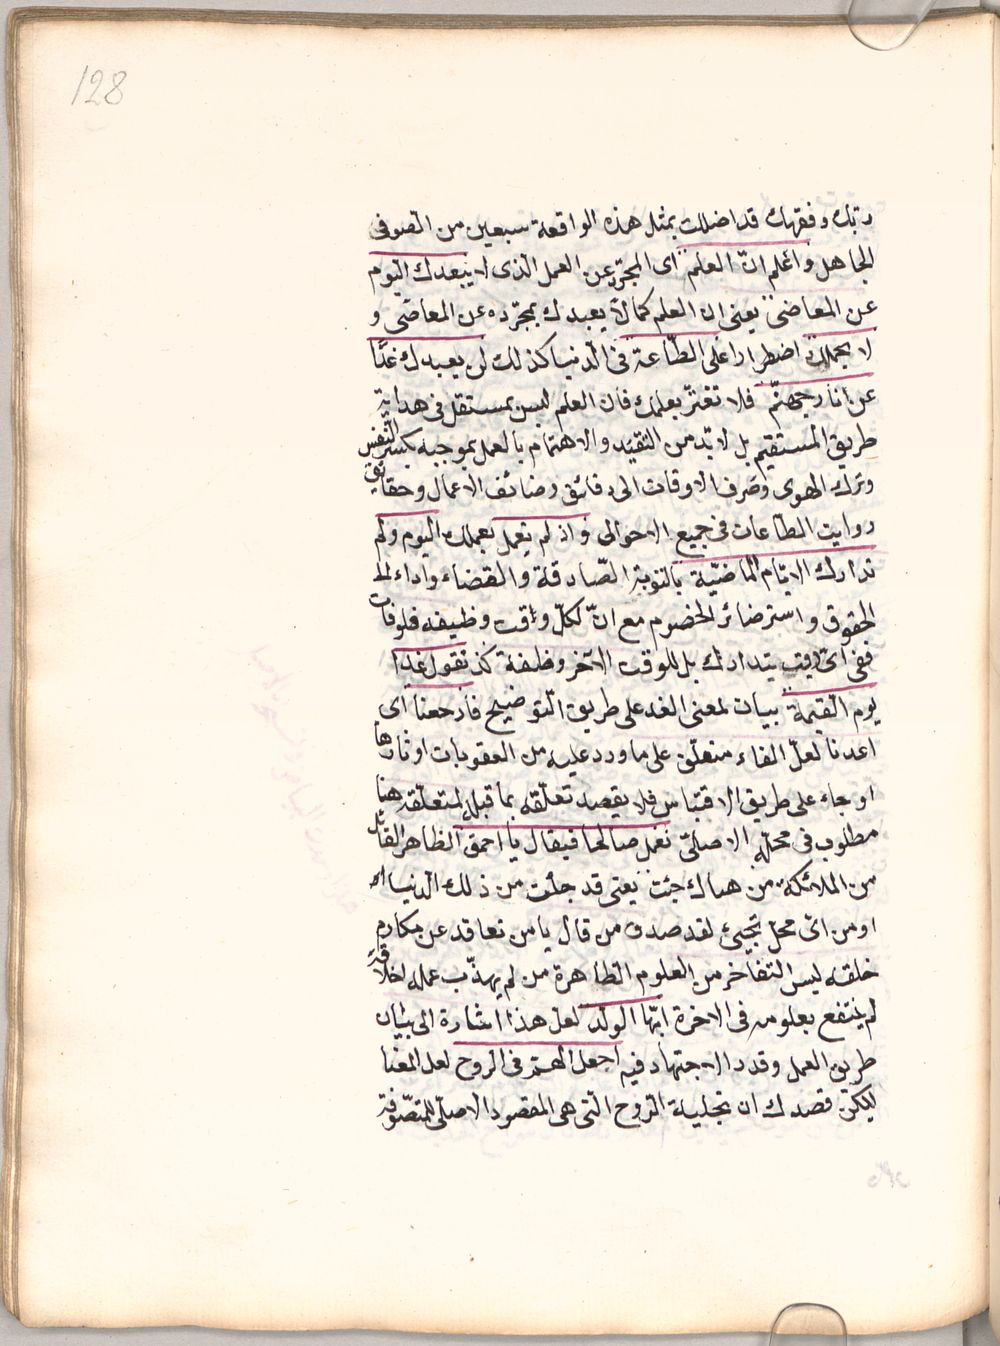 128
ربك وفقهك قد اضللت بمثل هذه الواقعة سبعين من الصوفى
الجاهل واعلم انّ العلم اى المجرّد عن العمل الذى لا يبعدك اليوم
عن المعاصى يعنى ان العلم كما لا يعبدك بمجرّده عن المعاصى و
لا يحملك اضطرارا على الطّاعة فى الدنيا كذلك لن يعبدك غدًا
عن نار جهنّم فلا تغترّ بعلمك فان العلم ليس بمستقل فى هداية
طريق المستقيم بل لا بدّ من التقيّد والاهتمام بالعمل بموجبه بكسر النّفس
وترك الهوى وصرف الاوقات الى دقائق وضائف الاعمال وحقايق
روايت الطّاعات فى جميع الاحوال واذ لم تعمل بعملك اليوم ولم
تدارك الايّام الماضيّة بالتوبة الصّادقة والقضاء واداء
الحقوق واسترضاء الخصوم مع انّ لكلّ وقت وظيفه فلوفات
ففى اىّ وقت يتدارك بل للوقت الآخر وظيفة كذ تقول غدا
يوم القيمة بيان لمعنى الغد على طريق التّوضيح فارجعنا اى
اعدنا لعلّ الفاء متعلّق على ما ورد عليه من العقوبات اوثارها
او جاء على طريق الاقتباس فلا يقصد تعلّقه بما قبله لمتعلّقه هنا
مطلوب فى محلّه الاصلىّ نعمل صالحا فيقال يا احمق الظاهر القائل
من الملائكة من هناك جئت يعنى قد جئت من ذلك الدنيا
او من اىّ محلّ تجيئ لقد صدق من قال يا من تعاقد عن مكارم
خلقه ليس التفاخر من العلوم الظاهرة من لم يهذّب عمله اخلاقه
لم ينتفع بعلومه فى الاخرة ايّها الولد لعل هذا اشارة الى بيان
طريق العمل وقدد الاجتهاد فيه اجعل الهمّة فى الروح لعل المعنا
ليكن قصدك ان تجلية الرّوح التى هى المقصود الاصلىّ للمتصّوفة